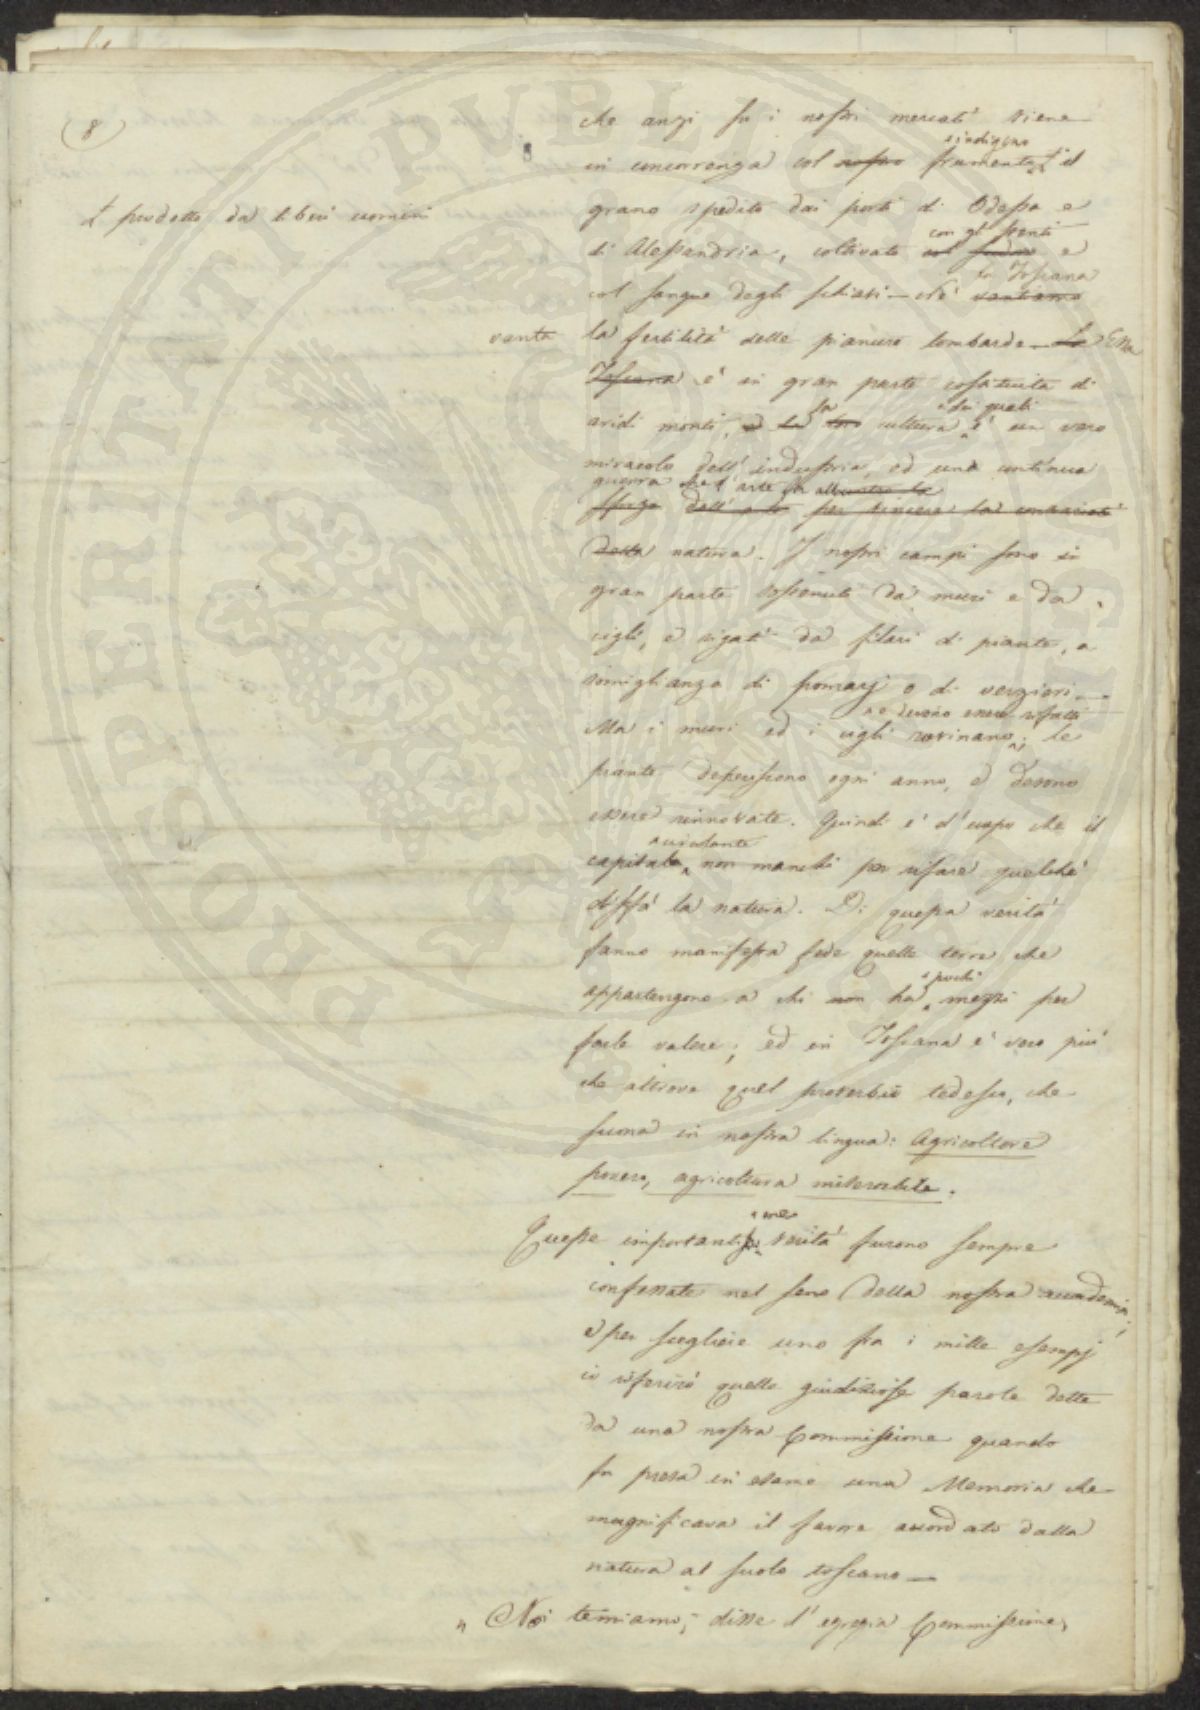 (8)
che anzi su i nostri mercati viene
indigeno
in concorrenza col nostro frumento + il
+ prodotto da liberi uomini
grano spedito dai porti di Odessa e
con gli stenti
di Alessandria, coltivato col sudore e
la Toscana
col sangue degli schiavi — Nè vantiamo
vanta la fertilità delle pianure lombarde. La Ella
Toscana è in gran parte costituita di
la dei quali
aridi monti, e la loro cultura è un vero
miracolo dell'industria, ed una continua
guerra che l'arte fa alla contro la
sforzo dell'arte per vincere la
della natura. I nostri campi sono in
gran parte sostenuti da muri e da
cigli, e rigati da filari di piante, a
somiglianza di pomarj o di verzieri —
e devono essere rifatti
Ma i muri ed i cigli rovinano; le
piante deperiscono ogni anno, e devono
essere rinnovate. Quindi è d'uopo che il
circolante
capitale non manchi per rifare quelchè
disfà la natura. Di questa verità
fanno manifesta fede quelle terre che
pochi
appartengono a chi non ha mezzi per
farle valere; ed in Toscana è vero più
che altrove quel proverbio tedesco, che
suona in nostra lingua: Agricoltore
povero, agricoltura miserabile.
Queste importanti verità furono sempre
confessate nel seno della nostra accademia;
e per scegliere uno fra i mille esempj
io riferirò quelle giudiziose parole dette
da una nostra Commissione quando
fu presa in esame una Memoria che
magnificava il favore accordato dalla
natura al suolo toscano —
" Noi temiamo, disse l'egregia Commissione,
PROSPERITATI PUBLICAE